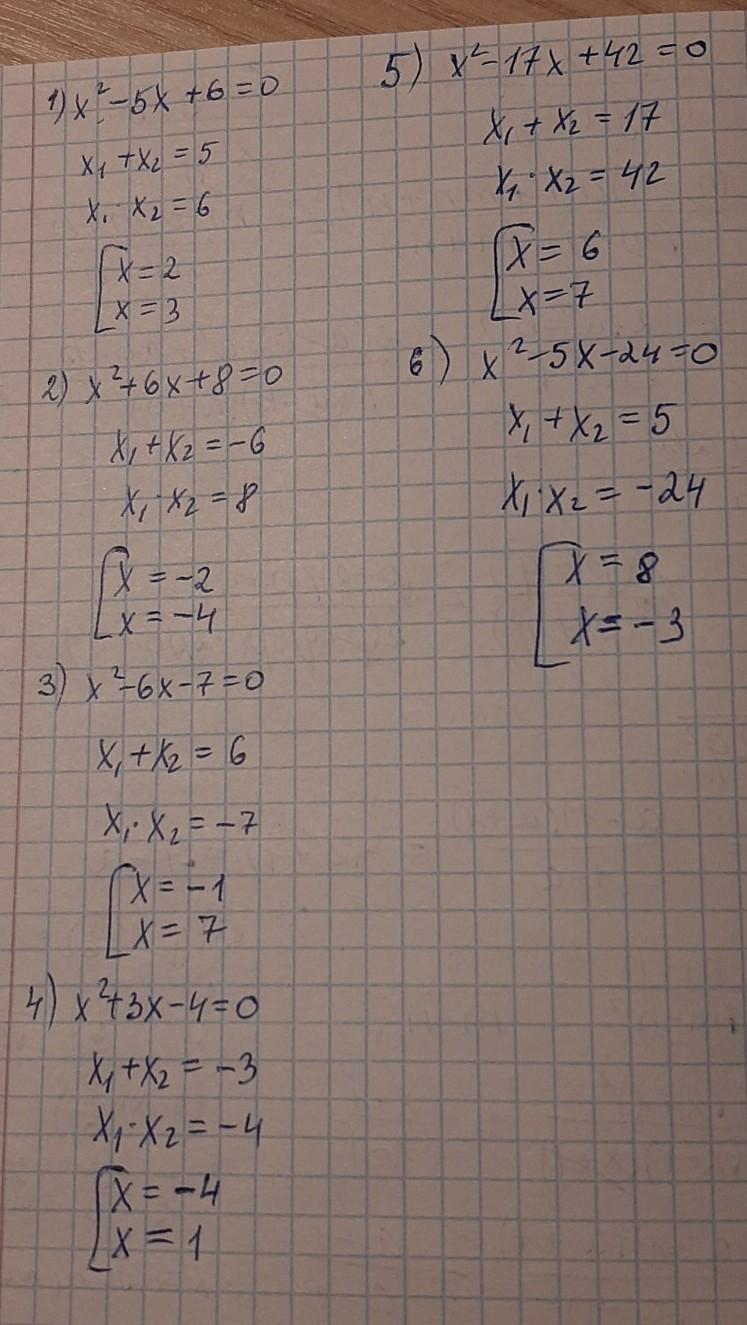 1) x² - 5x + 6 = 0
x₁ + x₂ = 5
x₁ · x₂ = 6
[ x = 2
x = 3
2) x² + 6x + 8 = 0
x₁ + x₂ = -6
x₁ · x₂ = 8
[ x = -2
x = -4
3) x² - 6x - 7 = 0
x₁ + x₂ = 6
x₁ · x₂ = -7
[ x = -1
x = 7
4) x² + 3x - 4 = 0
x₁ + x₂ = -3
x₁ · x₂ = -4
[ x = -4
x = 1
5) x² - 17x + 42 = 0
x₁ + x₂ = 17
x₁ · x₂ = 42
[ x = 6
x = 7
6) x² - 5x - 24 = 0
x₁ + x₂ = 5
x₁ · x₂ = -24
[ x = 8
x = -3